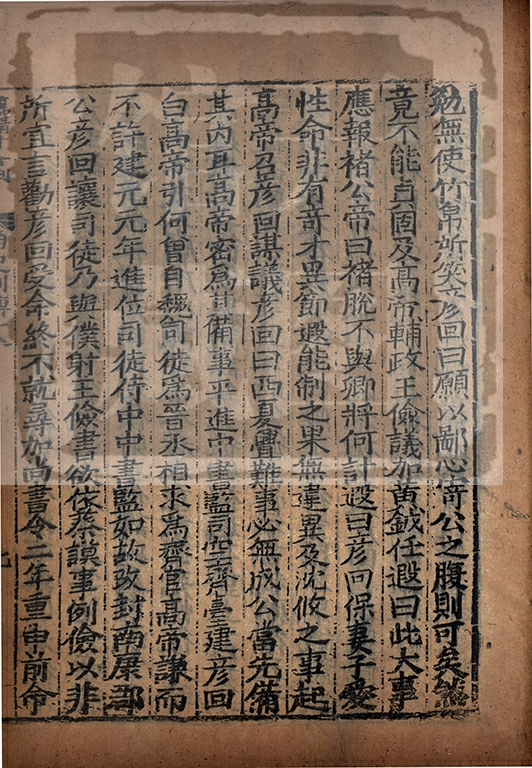 勉無使竹帛所笑彦回曰願以鄙心寄公之腹則可矣然
竟不能貞固及高帝輔政王儉議加黄鉞任遐曰此大事
應報褚公帝曰褚脫不與卿將何計遐曰彦回保妻子愛
性命非有奇才異節遐能制之果無違異及沈攸之事起
高帝召彦回謀議彦回曰西夏釁難事必無成公當先備
其内耳高帝密爲其備事平進中書監司空齊臺建彦回
白高帝引何曾自魏司徒爲晉丞相求爲齊官高帝謙而
不許建元元年進位司徒侍中中書監如故改封南康郡
公彦回讓司徒乃與僕射王儉書欲依蔡謨事例儉以非
所宜言勸彦回受命終不就尋加尚書令二年重申前命